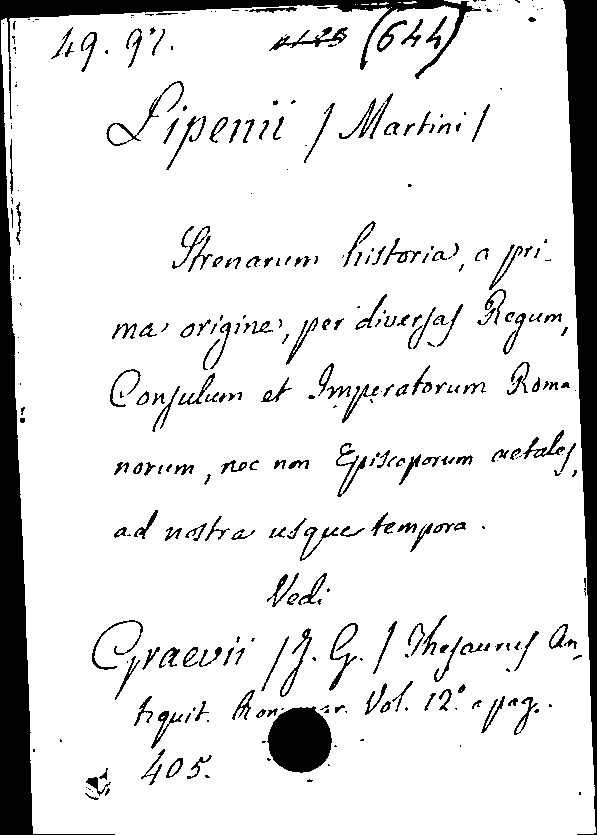 49. 97. (644)
Lipenii / Martini /
Strenarum historia, a pri-
ma origine, per diversas Regum,
Consulum et Imperatorum Roma
norum, nec non Episcoporum aetates,
ad nostra usque tempora.
Vedi
Graevii / J. G. / Thesaurus An-
tiquit. Vol. 12.° a pag.
405.